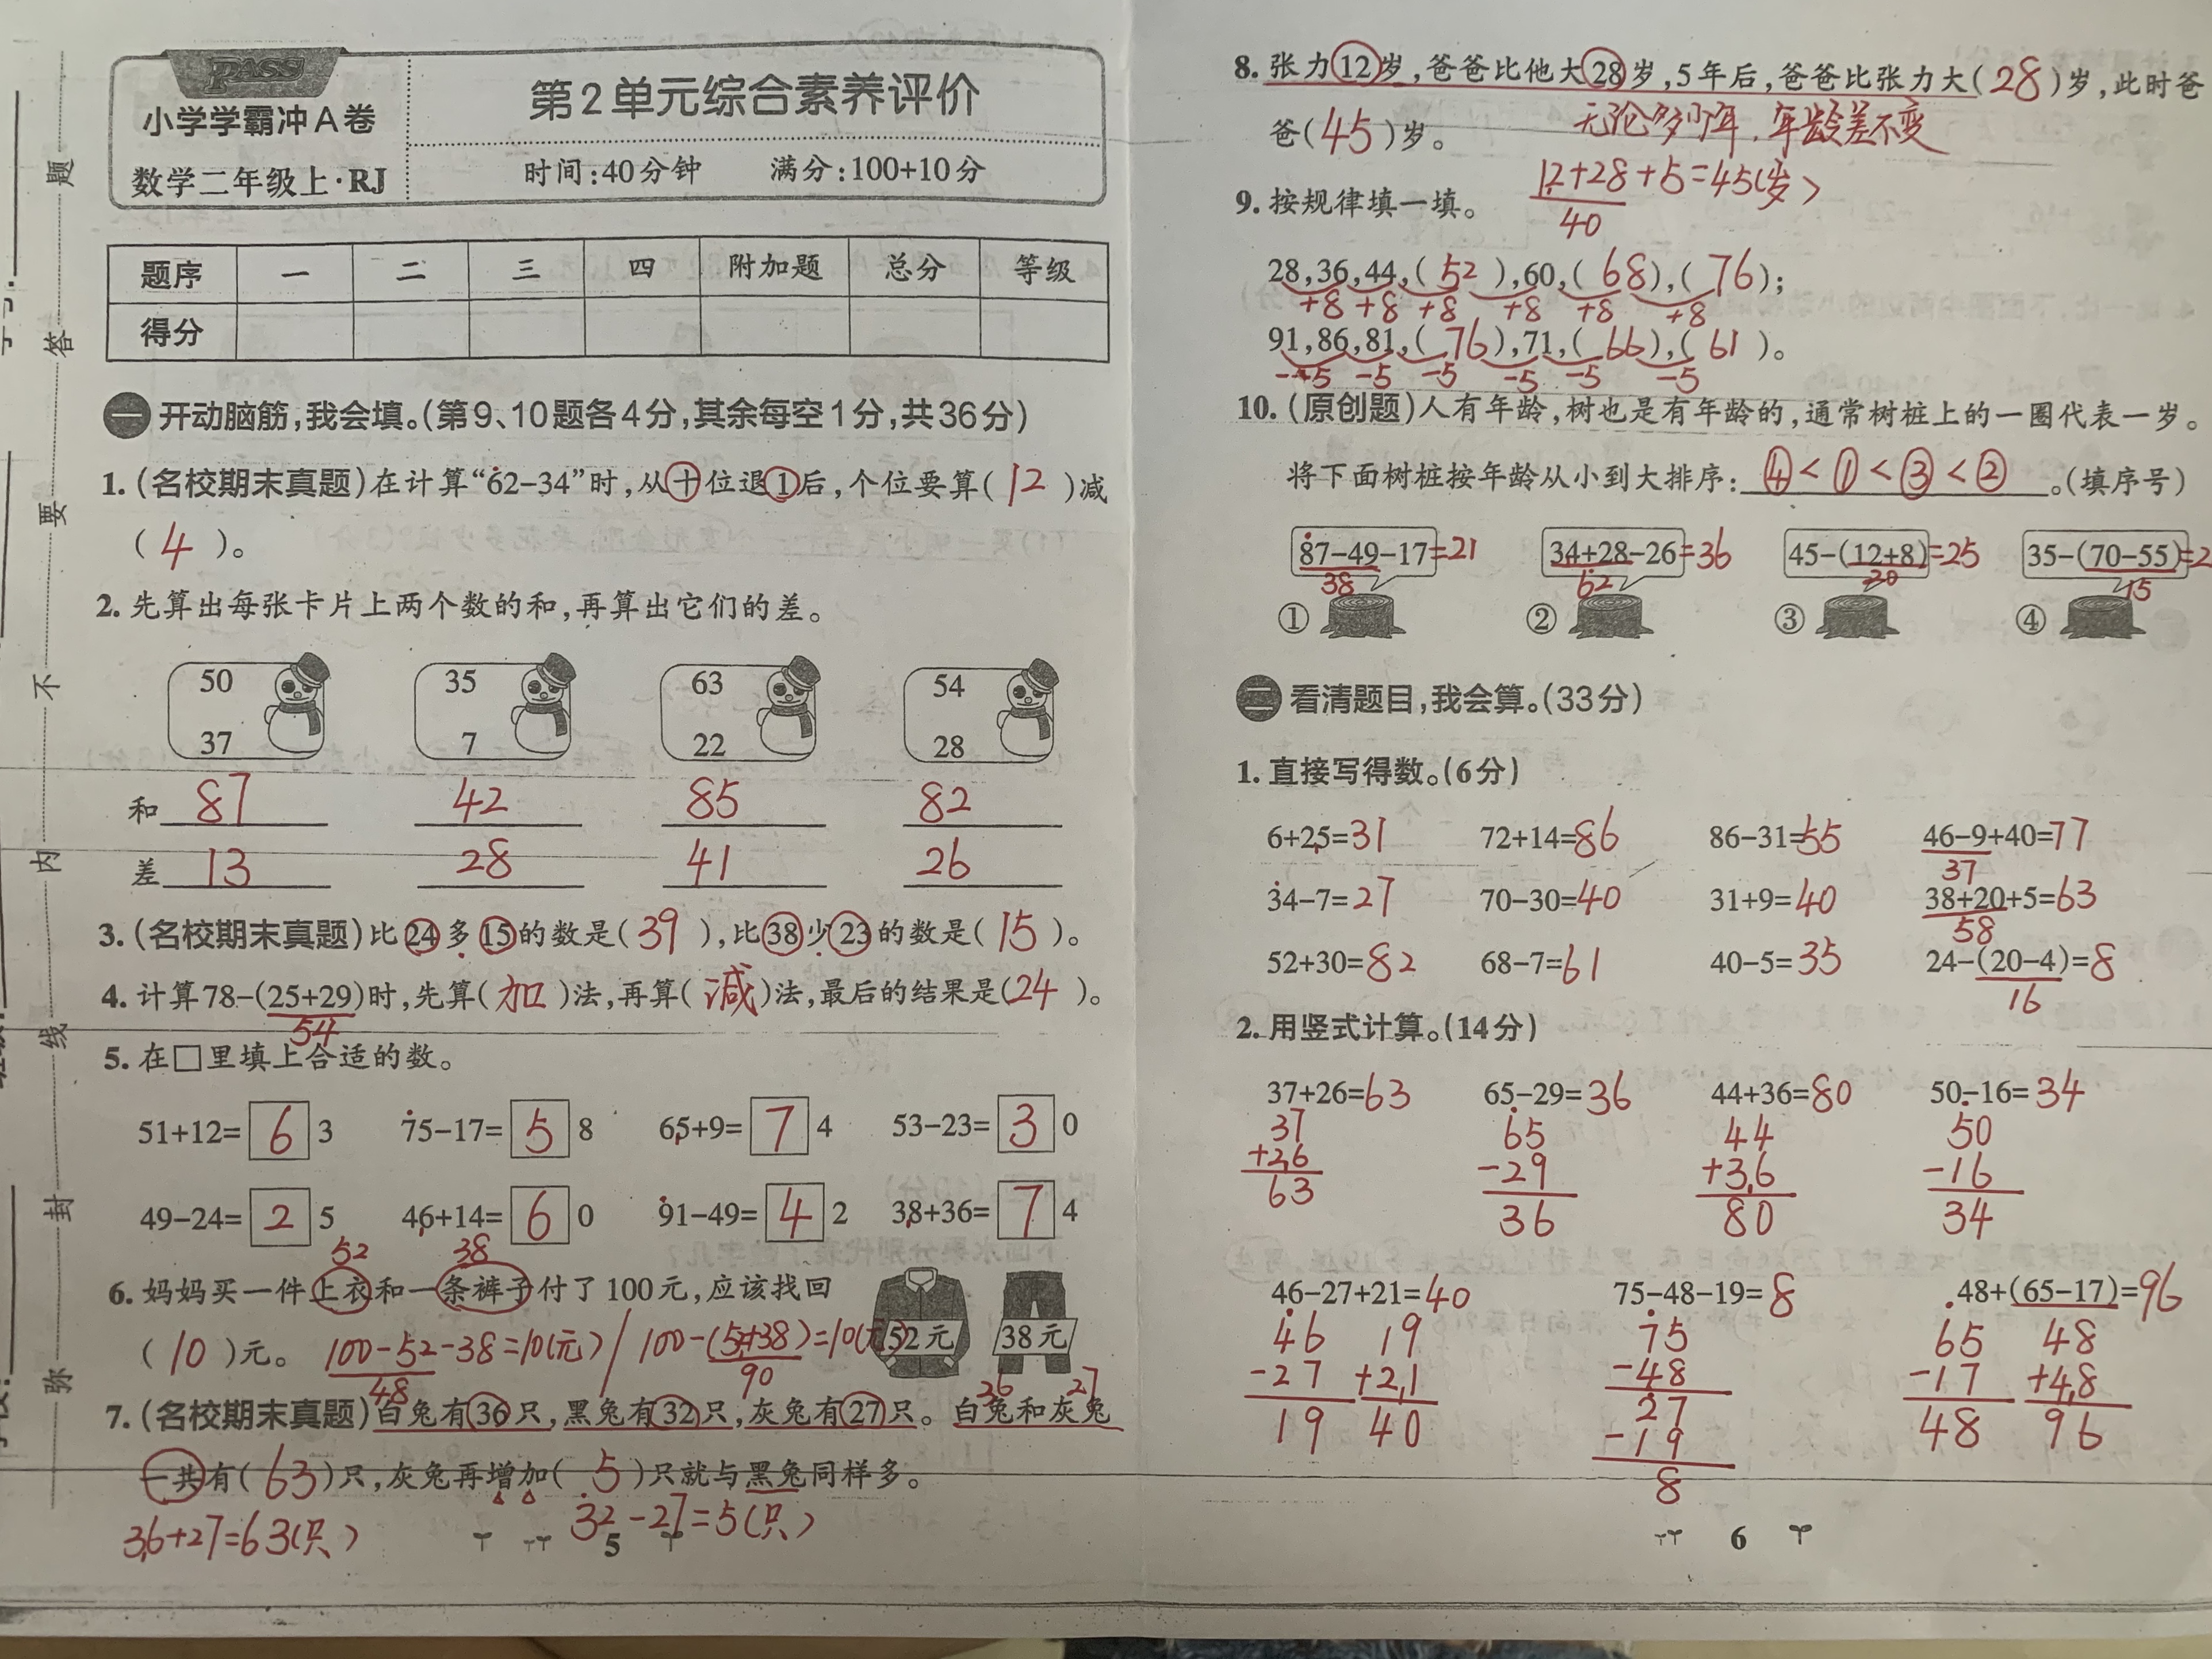 PASS
小学学霸冲A卷
数学二年级上·RJ
第2单元综合素养评价
时间:40分钟 满分:100+10分
题序 一 二 三 四 附加题 总分 等级
得分
一 开动脑筋,我会填。(第9、10题各4分,其余每空1分,共36分)
1. (名校期末真题)在计算“62-34”时,从十位退1后,个位要算( 12 )减
( 4 )。
2. 先算出每张卡片上两个数的和,再算出它们的差。
50 35 63 54
37 7 22 28
和 87 42 85 82
差 13 28 41 26
3. (名校期末真题)比24多15的数是( 39 ),比38少23的数是( 15 )。
4. 计算78-(25+29)时,先算( 加 )法,再算( 减 )法,最后的结果是( 24 )。
54
5. 在□里填上合适的数。
51+12= 6 3 75-17= 5 8 65+9= 7 4 53-23= 3 0
49-24= 2 5 46+14= 6 0 91-49= 4 2 38+36= 7 4
52 38
6. 妈妈买一件上衣和一条裤子付了100元,应该找回
( 10 )元。 100-52-38=10(元) / 100-(52+38)=10(元) 52元 38元
48 90
36 27
7. (名校期末真题)白兔有36只,黑兔有32只,灰兔有27只。白兔和灰兔
一共有( 63 )只,灰兔再增加( 5 )只就与黑兔同样多。
36+27=63(只) 32-27=5(只)
5
8. 张力12岁,爸爸比他大28岁,5年后,爸爸比张力大( 28 )岁,此时爸
爸( 45 )岁。 无论多少年,年龄差不变
12+28+5=45(岁)
40
9. 按规律填一填。
28,36,44,( 52 ),60,( 68 ),( 76 );
+8 +8 +8 +8 +8 +8
91,86,81,( 76 ),71,( 66 ),( 61 )。
-5 -5 -5 -5 -5 -5
10. (原创题)人有年龄,树也是有年龄的,通常树桩上的一圈代表一岁。
将下面树桩按年龄从小到大排序: ④<①<③<② 。(填序号)
87-49-17=21 34+28-26=36 45-(12+8)=25 35-(70-55)=2
38 62 20 15
① ② ③ ④
二 看清题目,我会算。(33分)
1. 直接写得数。(6分)
6+25=31 72+14=86 86-31=55 46-9+40=77
37
34-7=27 70-30=40 31+9=40 38+20+5=63
58
52+30=82 68-7=61 40-5=35 24-(20-4)=8
16
2. 用竖式计算。(14分)
37+26=63 65-29=36 44+36=80 50-16=34
37 65 44 50
+26 -29 +36 -16
63 36 80 34
46-27+21=40 75-48-19=8 48+(65-17)=96
46 19 75 65 48
-27 +21 -48 -17 +48
19 40 27 48 96
-19
8
6
题
答
要
不
内
线
封
弥